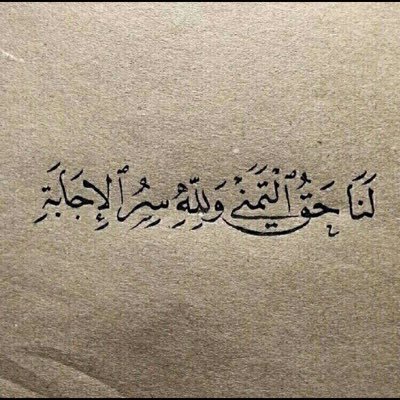 لَنَا حَقُّ ٱلْتَمَنّيَ وَلِلّهِ سِرُ ٱلإِجَابَةِ